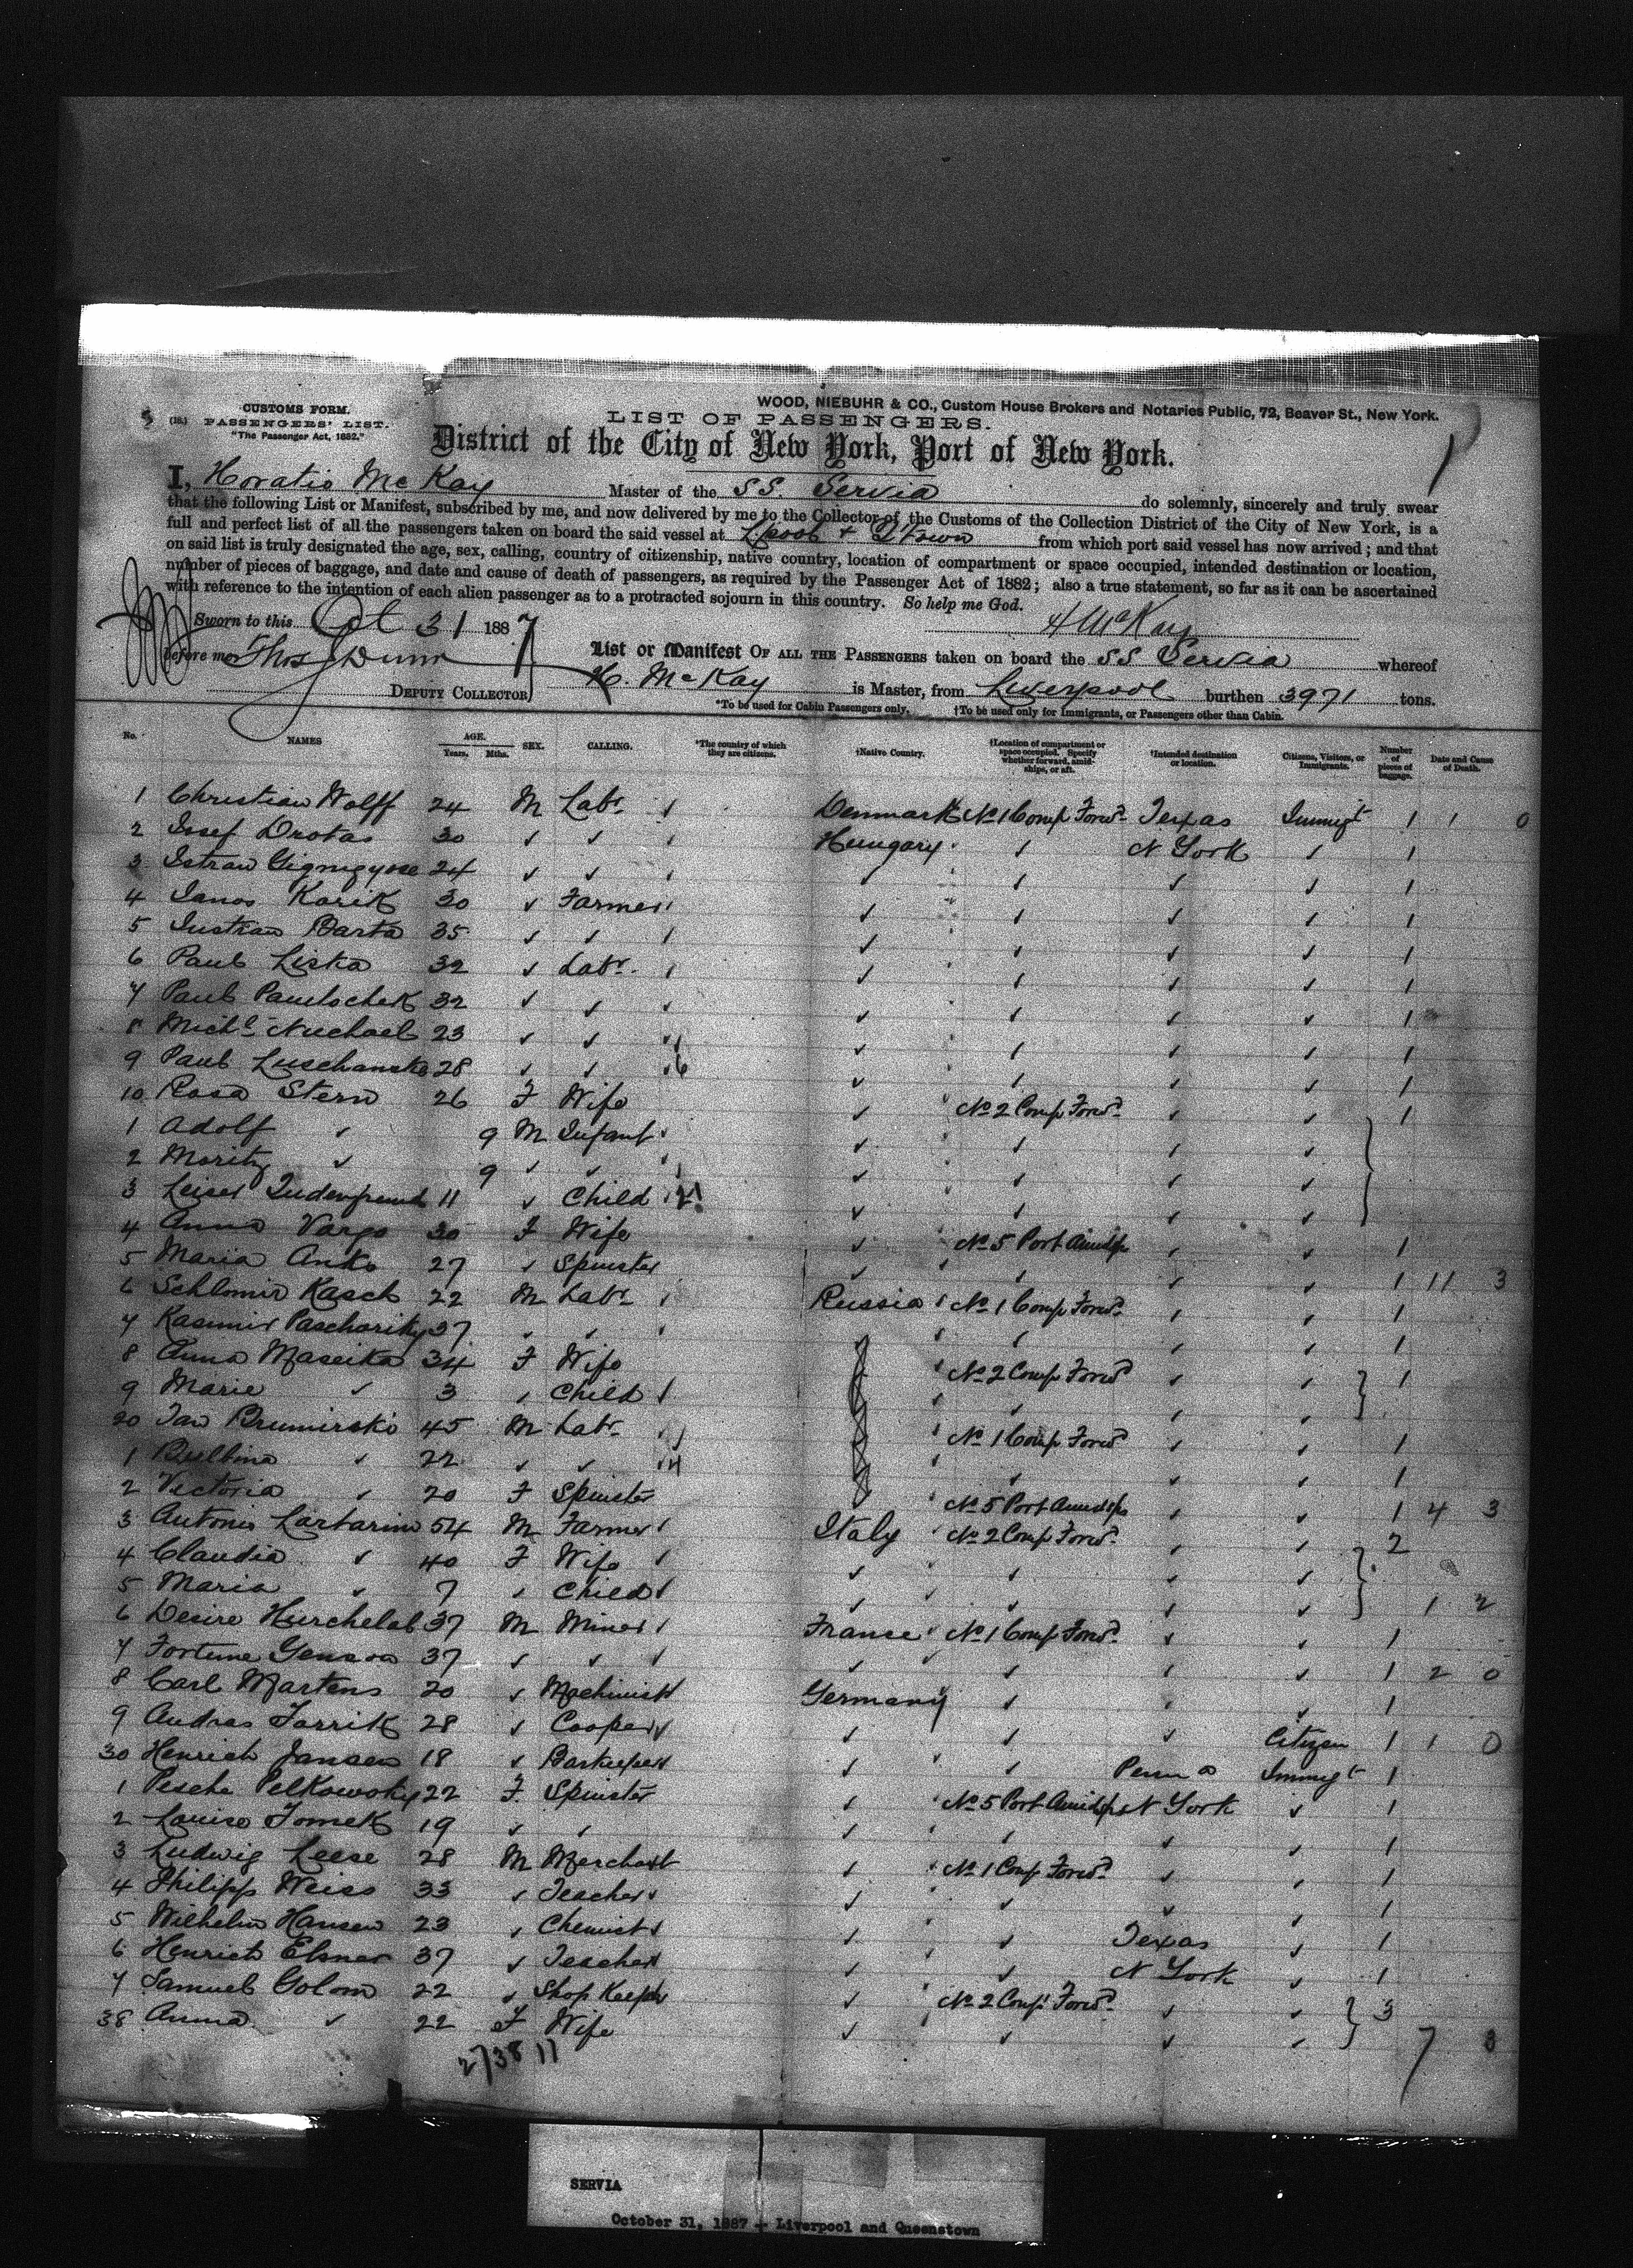 WOOD, NIEBUHR & CO., Custom House Brokers and Notaries Public, 72, Beaver St., New York.
CUSTOMS FORM.
PASSENGERS' LIST.
"The Passenger Act, 1882."
LIST OF PASSENGERS.
District of the City of New York, Port of New York.
I, Horatio McKay Master of the S.S. Servia do solemnly, sincerely and truly swear
that the following List or Manifest, subscribed by me, and now delivered by me to the Collector of the Customs of the Collection District of the City of New York, is a
full and perfect list of all the passengers taken on board the said vessel at L'pool + Q'town from which port said vessel has now arrived; and that
on said list is truly designated the age, sex, calling, country of citizenship, native country, location of compartment or space occupied, intended destination or location,
number of pieces of baggage, and date and cause of death of passengers, as required by the Passenger Act of 1882; also a true statement, so far as it can be ascertained
with reference to the intention of each alien passenger as to a protracted sojourn in this country. So help me God.
Sworn to this Oct 31 1887 H McKay
before me Thos Dunn List or Manifest OF ALL THE PASSENGERS taken on board the S.S Servia whereof
DEPUTY COLLECTOR H. McKay is Master, from Liverpool burthen 3971 tons.
*To be used for Cabin Passengers only. †To be used only for Immigrants, or Passengers other than Cabin.
No. NAMES AGE. Years. Mths. SEX. CALLING. *The country of which they are citizens. †Native Country. †Location of compartment or space occupied. Specify whether forward, amidships, or aft. †Intended destination or location. Citizens, Visitors, or Immigrants. Number of pieces of baggage. Date and Cause of Death.
1 Christian Wolff 24 M Labr Denmark No 1 Comp Forwd Texas Immigt 1 1 0
2 Josef Drotas 30 ✓ ✓ Hungary ✓ N York ✓ 1
3 24 ✓ ✓ ✓ ✓ ✓ ✓ 1
4 Janos Korik 30 ✓ Farmer ✓ ✓ ✓ ✓ 1
5 Barta 35 ✓ ✓ ✓ ✓ ✓ ✓ 1
6 Paul Liska 32 ✓ Labr ✓ ✓ ✓ ✓ 1
7 Paul 32 ✓ ✓ ✓ ✓ ✓ ✓ 1
8 Michl 23 ✓ ✓ ✓ ✓ ✓ ✓ 1
9 Paul 28 ✓ ✓ ✓ ✓ ✓ ✓ 1
10 Rosa Stern 26 F Wife ✓ No 2 Comp Forwd ✓ ✓ 1
1 Adolf ✓ 9 M Infant ✓ ✓ ✓ ✓
2 Moritz ✓ 9 ✓ ✓ ✓ ✓ ✓ ✓
3 11 ✓ Child ✓ ✓ ✓ ✓
4 Anna Vargo 30 F Wife ✓ No 5 Port Amidsp ✓ ✓ 1
5 Maria Anko 27 ✓ Spinster ✓ ✓ ✓ ✓ 1 11 3
6 Schlomir Kasch 22 M Labr Russia No 1 Comp Forwd ✓ ✓ 1
7 Kasimir 37 ✓ ✓ ✓ ✓ ✓ 1
8 Anna Maseika 34 F Wife No 2 Comp Forwd ✓ ✓ 1
9 Marie ✓ 3 ✓ Child ✓ ✓ ✓
20 Jan Brumirski 45 M Labr No 1 Comp Forwd ✓ ✓ 1
1 ✓ 22 ✓ ✓ ✓ ✓ ✓ 1
2 Victoria ✓ 20 F Spinster No 5 Port Amidsp ✓ ✓ 1 4 3
3 Antonio 54 M Farmer Italy No 2 Comp Forwd ✓ ✓ 2
4 Claudia ✓ 40 F Wife ✓ ✓ ✓ ✓
5 Maria ✓ 7 ✓ Child ✓ ✓ ✓ ✓ 1 2
6 Desire 37 M Miner France No 1 Comp Forwd ✓ ✓ 1
7 Fortune 37 ✓ ✓ ✓ ✓ ✓ ✓ 1 2 0
8 Carl Martens 20 ✓ Machinist Germany ✓ ✓ ✓ 1
9 Andras Farrik 28 ✓ Cooper ✓ ✓ ✓ Citizen 1 1 0
30 Henrich Jansen 18 ✓ Barkeeper ✓ ✓ Penna Immigt 1
1 Pesche Pelkowoky 22 F Spinster ✓ No 5 Port Amidsp N York ✓ 1
2 Louise Tomek 19 ✓ ✓ ✓ ✓ ✓ ✓ 1
3 Ludwig Leese 28 M Merchant ✓ No 1 Comp Forwd ✓ ✓ 1
4 Philipp Weiss 33 ✓ Teacher ✓ ✓ ✓ ✓ 1
5 Wilhelm Hansen 23 ✓ Chemist ✓ ✓ Texas ✓ 1
6 Henrich Elsner 37 ✓ Teacher ✓ ✓ N York ✓ 1
7 Samuel Golom 22 ✓ Shop Keeper ✓ No 2 Comp Forwd ✓ ✓ 3
38 Anna ✓ 22 F Wife ✓ ✓ ✓ ✓ 7 3
27 38 11
SERVIA
October 31, 1887 - Liverpool and Queenstown